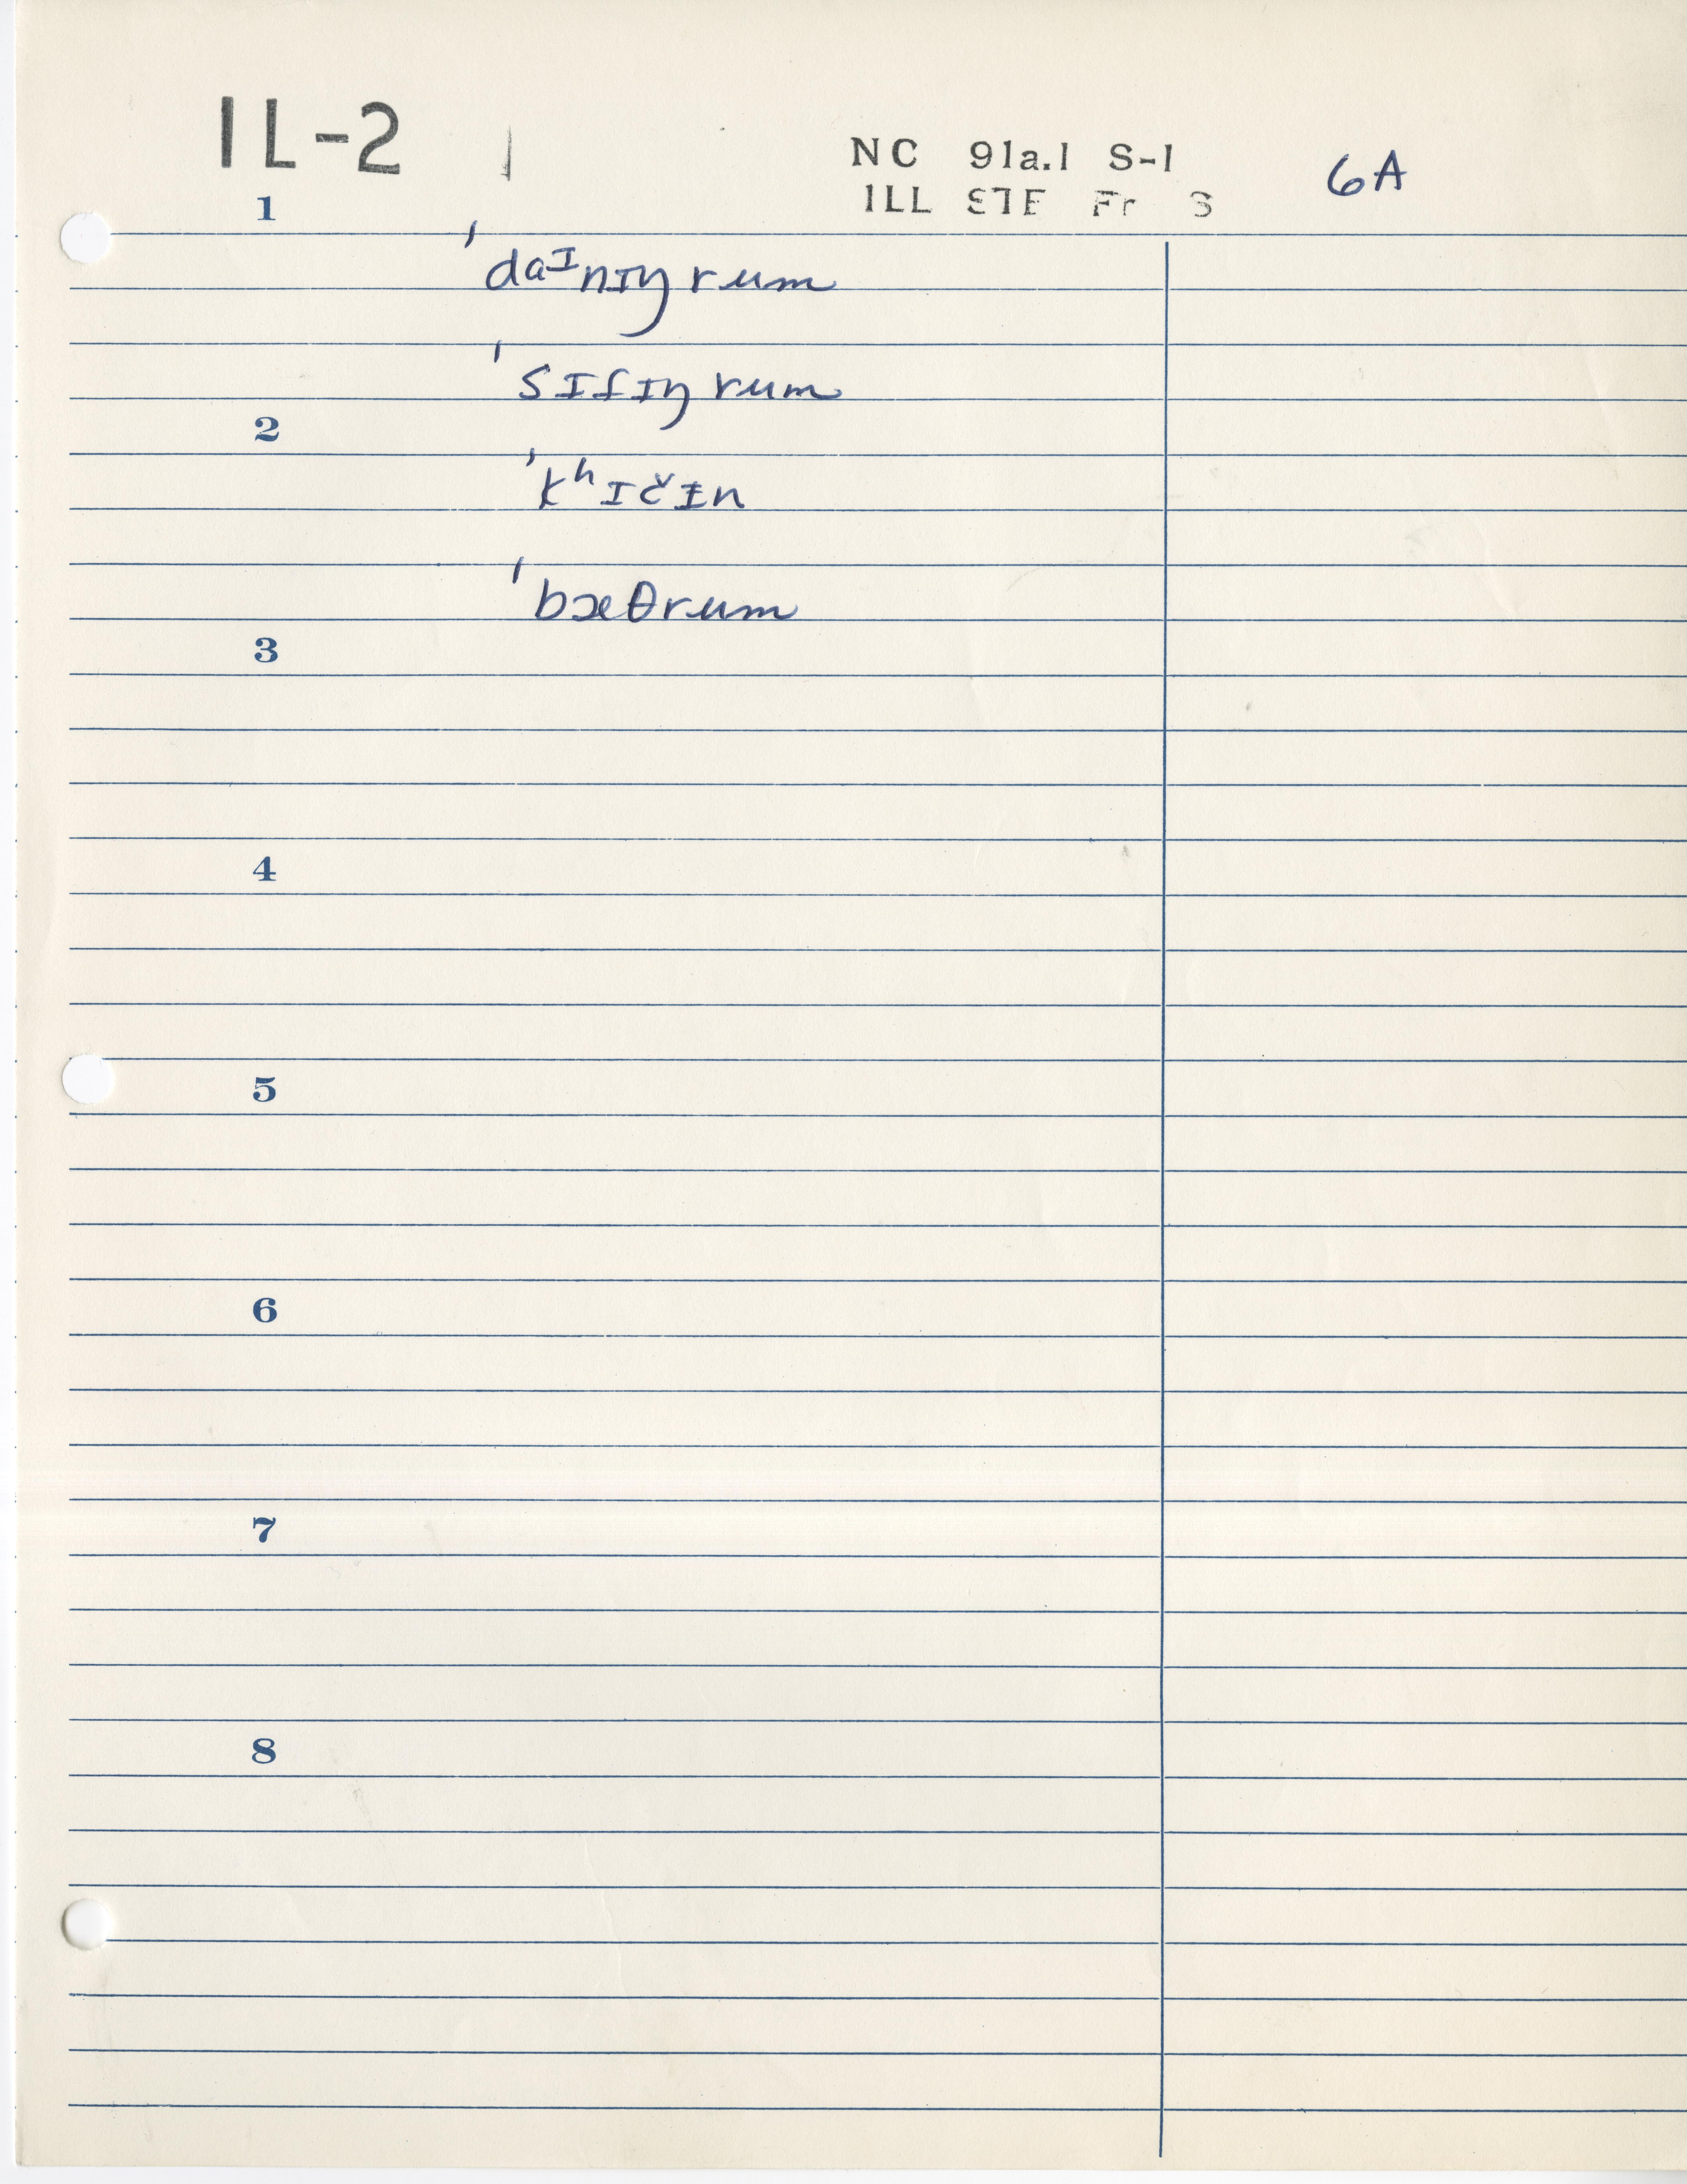 IL-2
NC 91a.1 S-1
ILL STE Fr S
6A
1
ˈdaᴵnɪŋ rum
ˈsɪfɪŋ rum
2
ˈkʰɪčɪn
ˈbæθrum
3
4
5
6
7
8